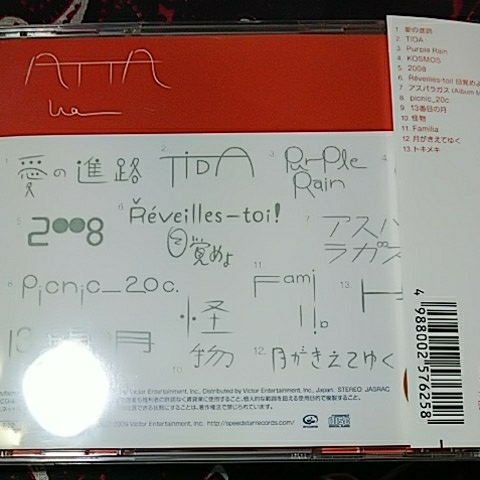 ATTA
Ua
1 愛の進路
2 TIDA
3 Purple Rain
4
5 2008
6 Réveilles-toi! 目覚めよ
7 アスパ
ラガス
8 picnic_20c.
の月
10. 怪物
11 Fami
lia
12. 月がきえてゆく
13. ト
1 愛の進路
2 TIDA
3 Purple Rain
4 KOSMOS
5 2008
6 Réveilles-toi! 目覚めよ
7 アスパラガス (Album
8 picnic_20c
9 13番目の月
10 怪物
11 Familia
12 月がきえてゆく
13 トキメキ
Victor Entertainment, Inc. Distributed by Victor Entertainment, Inc., Japan. STEREO JASRAC
Victor Entertainment, Inc. http://speedstarrecords.com/
4 988002 576258